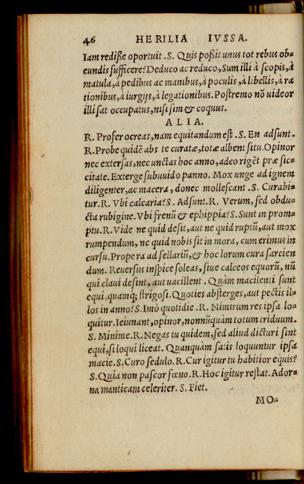 46 HERILIA IVSSA.
Iam redisse oportuit. S. Quis poßit unus tot rebus ob=
eundis sufficere? Deduco ac reduco, Sum illi à scopis, à
matula, à pedibus ac manibus, à poculis, à libellis, à ra
tionibus, à iurgijs, à legationibus. Postremo nō videor
illi sat occupatus, nisi sim & coquus.
ALIA.
R. Profer ocreas, nam equitandum est. S. En adsunt.
R. Probe quidē abs te curatæ, totæ albent situ. Opinor
nec extersas, nec unctas hoc anno, adeo rigēt præ sic=
citate. Exterge subuuido panno. Mox unge ad ignem
diligenter, ac macera, donec mollescant. S. Curabi=
tur. R. Vbi calcaria? S. Adsunt. R. Verum, sed obdu=
cta rubigine. Vbi frenū & ephippia? S. Sunt in prom=
ptu. R. Vide ne quid desit, aut ne quid ruptū, aut mox
rumpendum, ne quid nobis sit in mora, cum erimus in
cursu. Propera ad sellariū, & hoc lorum cura sarcien
dum. Reuersus inspice soleas, siue calceos equorū, nū
qui claui desint, aut uacillent. Quàm macilenti sunt
equi, quamq; strigosi. Quoties absterges, aut pectis il=
los in anno? S. Imò quotidie. R. Nimirum res ipsa lo=
quitur. Ieiunant, opinor, nonnūquàm totum triduum.
S. Minime. R. Negas tu quidem, sed aliud dicturi sint
equi, si loqui liceat. Quanquàm satis loquuntur ipsa
macie. S. Curo sedulo. R. Cur igitur tu habitior equis?
S. Quia non pascor fœno. R. Hoc igitur restat. Ador=
na manticam celeriter. S. Fiet.
MO=